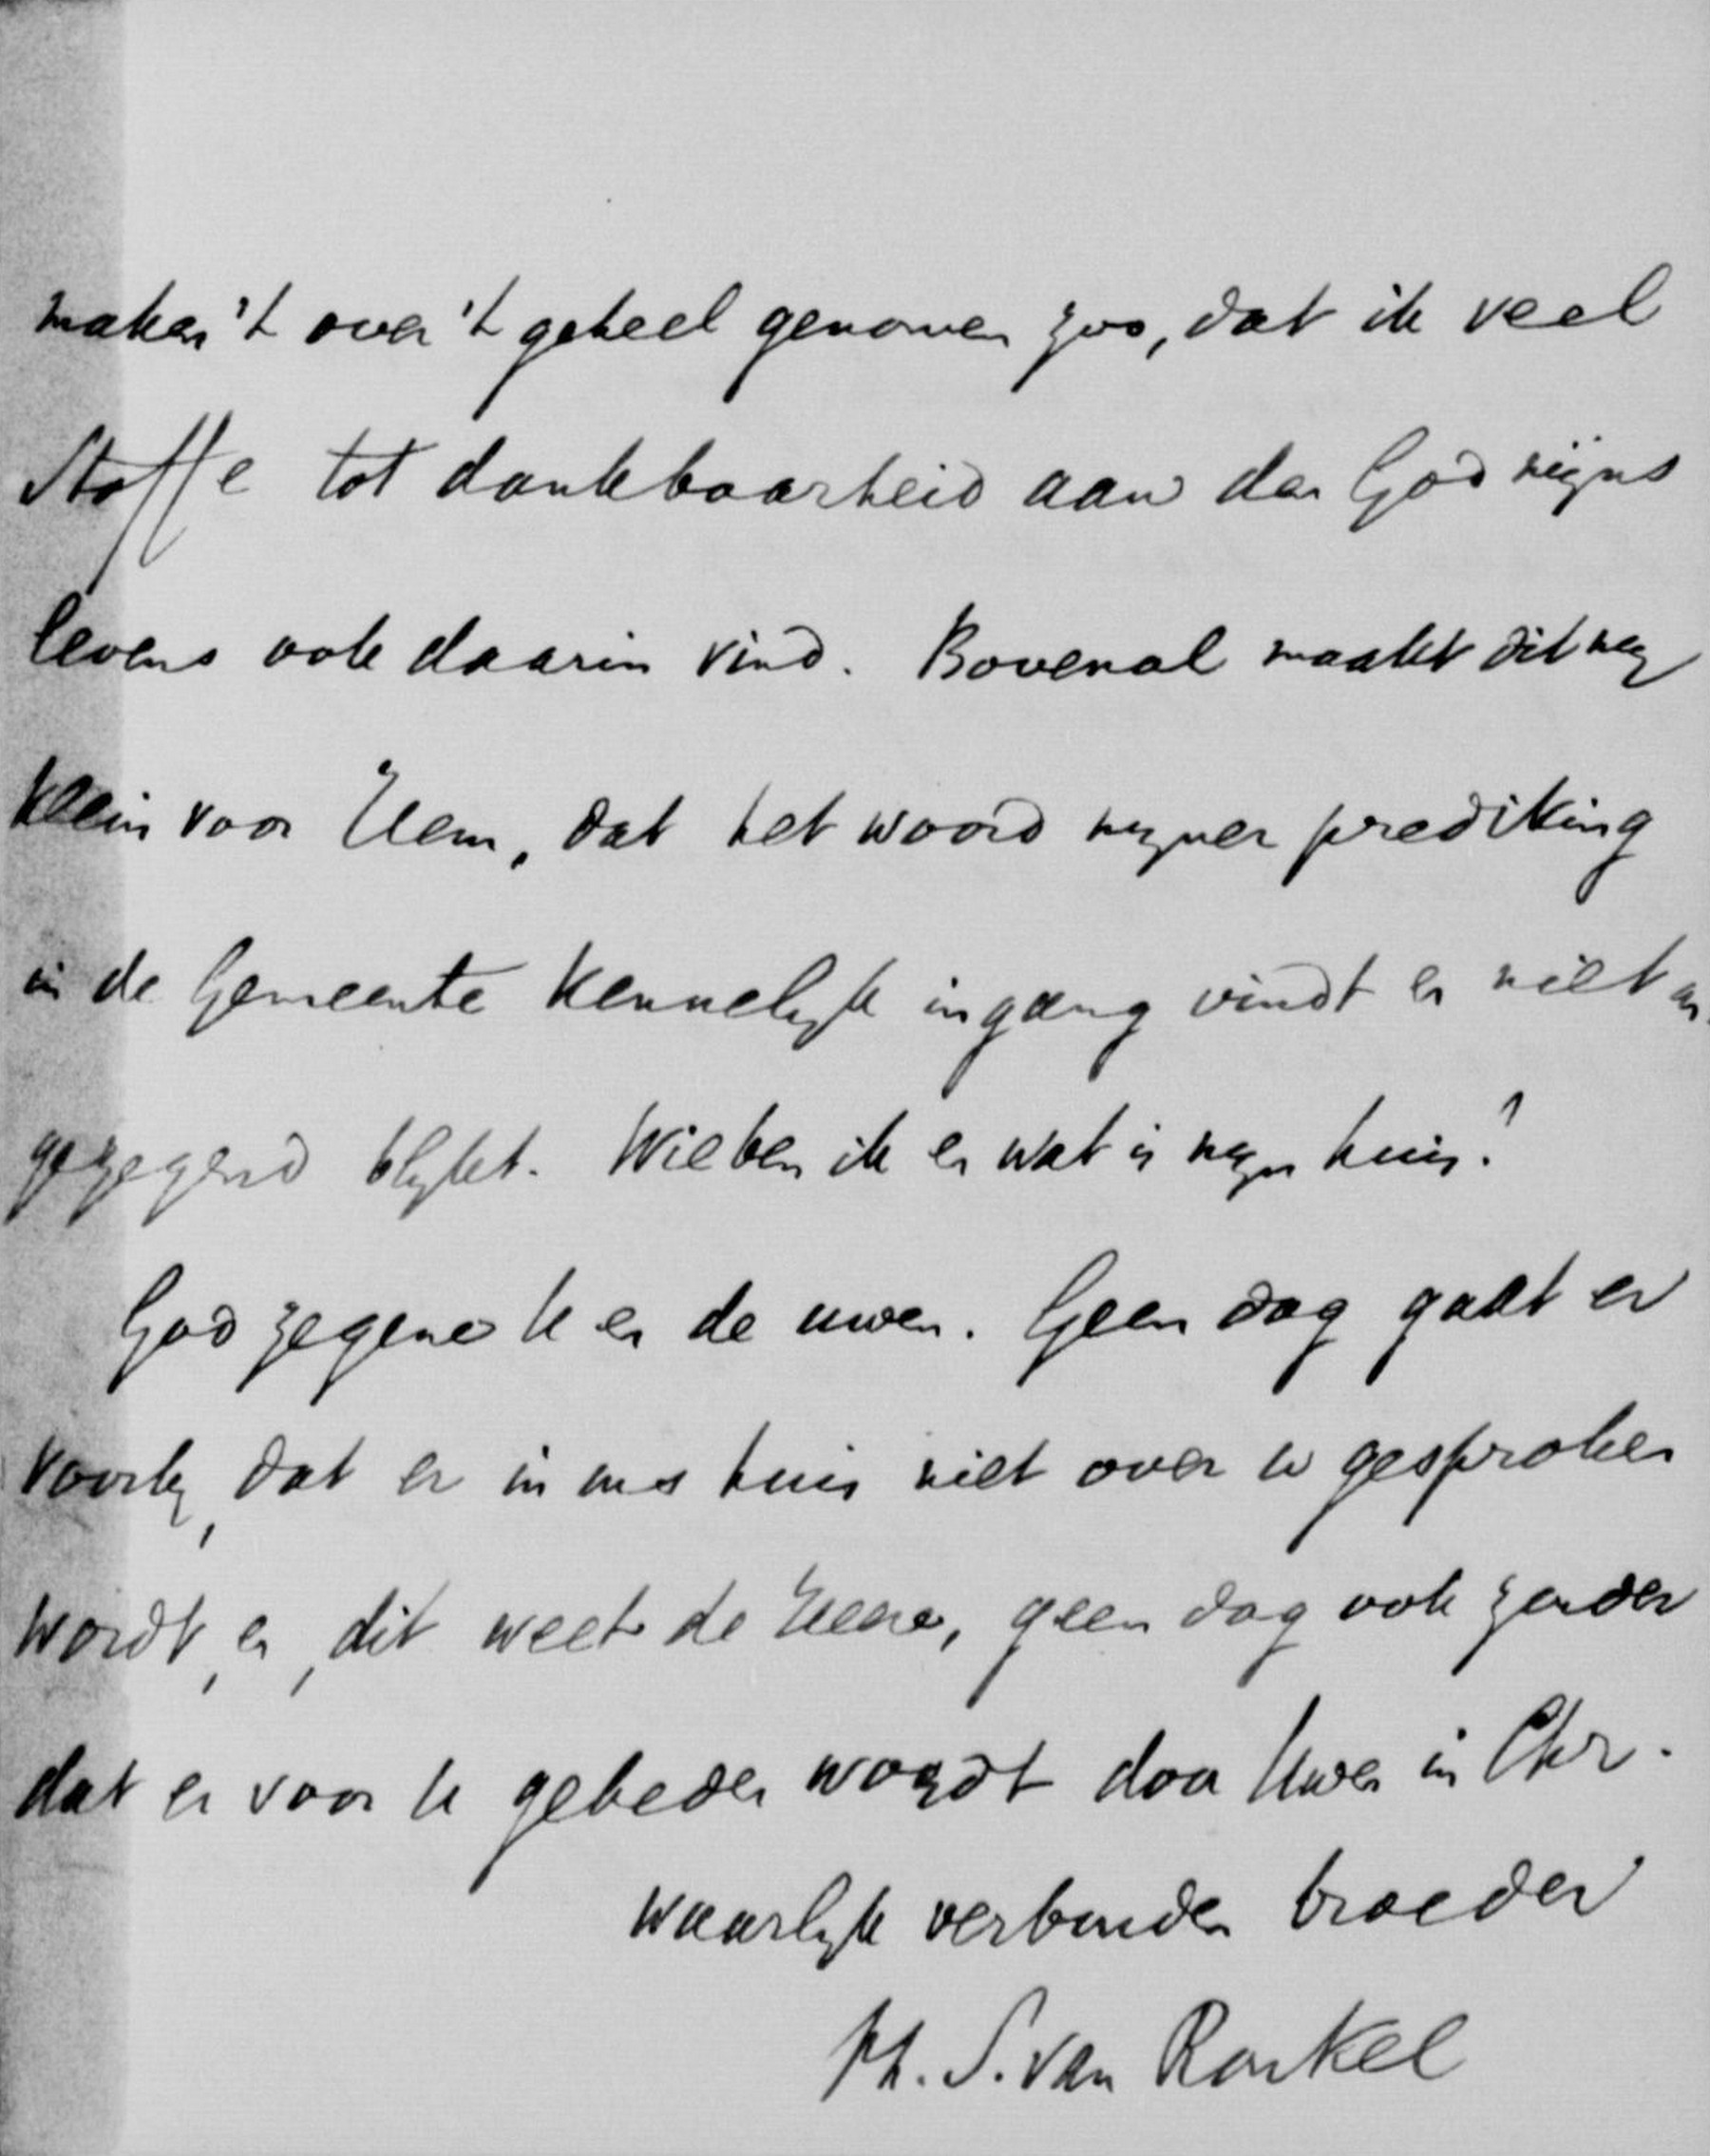 maken 't over 't geheel genomen zoo, dat ik veel
Stoffe tot dankbaarheid aan den God mijns
levens ook daarin vind. Bovenal maakt dit my
klein voor Hem, dat het woord myner prediking
in de Gemeente kennelyk ingang vindt en niet on-
gezegend blykt. Wie ben ik en wat is myn huis?
God zegene U en de uwen. Geen dag gaat er
voorby, dat er in ons huis niet over U gesproken
wordt, en, dit weet de Heere, geen dag ook zonder
dat er voor U gebeden wordt door Uwen in Chr.
waarlyk verbonden broeder
Ph. S. van Ronkel